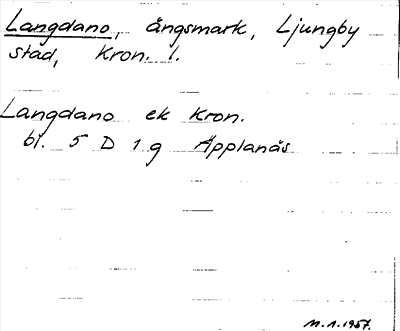 Langdano, ängsmark, Ljungby
stad, Kron. l.
Langdano ek Kron.
bl. 5 D 1 g Äpplanäs
11.1.1957.